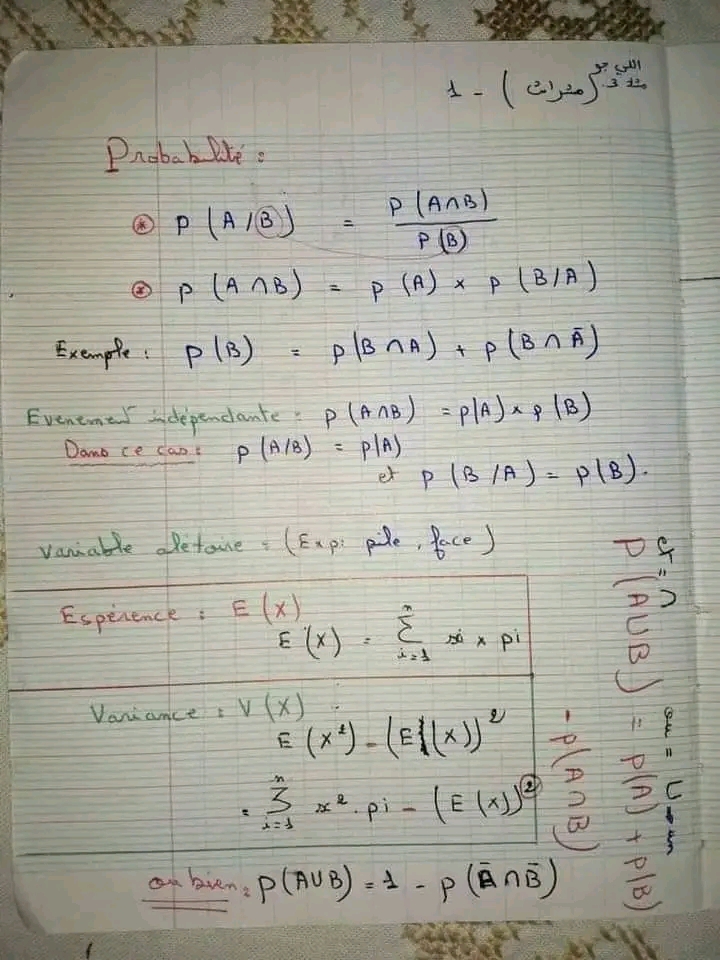 اللي جو
منذ 3.
1 - (
Probabilité :
P (A/B) = P (A∩B) / P(B)
P (A∩B) = P (A) × P (B/A)
Exemple : P(B) = P(B∩A) + P(B∩Ā)
Evenement indépendante : P (A∩B) = P(A) × P(B)
Dans ce cas : P (A/B) = P(A)
et P (B/A) = P(B).
Variable alétoire = (Exp: pile, face)
Espérence : E (X)
E (X) = Σ i=1 n xi × pi
Variance : V(X) :
E (X²) - (E(X))²
= Σ i=1 n x². pi - (E(X))²
ou bien : P(A∪B) = 1 - P(Ā∩B̄)
et = ∩ ou = ∪
P(A∪B) = P(A) + P(B)
- P(A∩B)